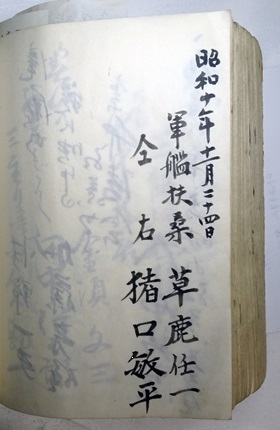 昭和十一年十一月二十四日
軍艦扶桑 草鹿任一
仝右 猪口敏平